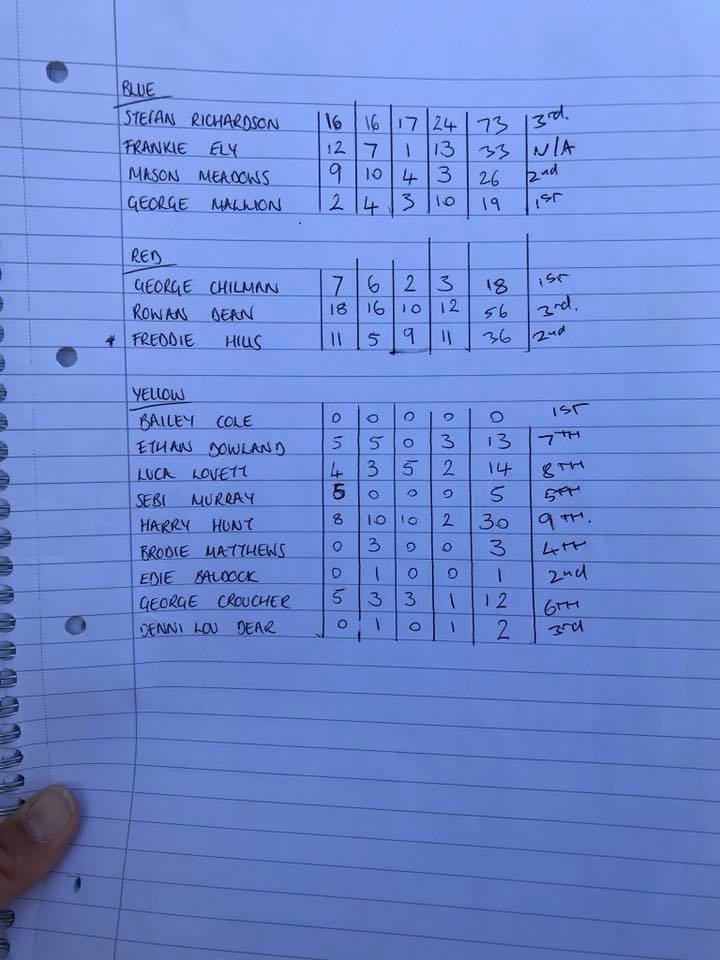 BLUE
STEFAN RICHARDSON 16 16 17 24 73 3rd.
FRANKIE ELY 12 7 1 13 33 N/A
MASON MEADOWS 9 10 4 3 26 2nd
GEORGE MALLION 2 4 3 10 19 1ST
RED
GEORGE CHILMAN 7 6 2 3 18 1ST
ROWAN DEAN 18 16 10 12 56 3rd.
* FREDDIE HILLS 11 5 9 11 36 2nd
YELLOW
BAILEY COLE 0 0 0 0 0 1ST
ETHAN DOWLAND 5 5 0 3 13 7TH
LUCA LOVETT 4 3 5 2 14 8TH
SEBI MURRAY 5 0 0 0 5 5TH
HARRY HUNT 8 10 10 2 30 9TH.
BRODIE MATTHEWS 0 3 0 0 3 4TH
EDIE BALDOCK 0 1 0 0 1 2nd
GEORGE CROUCHER 5 3 3 1 12 6TH
DENNI LOU DEAR 0 1 0 1 2 3rd